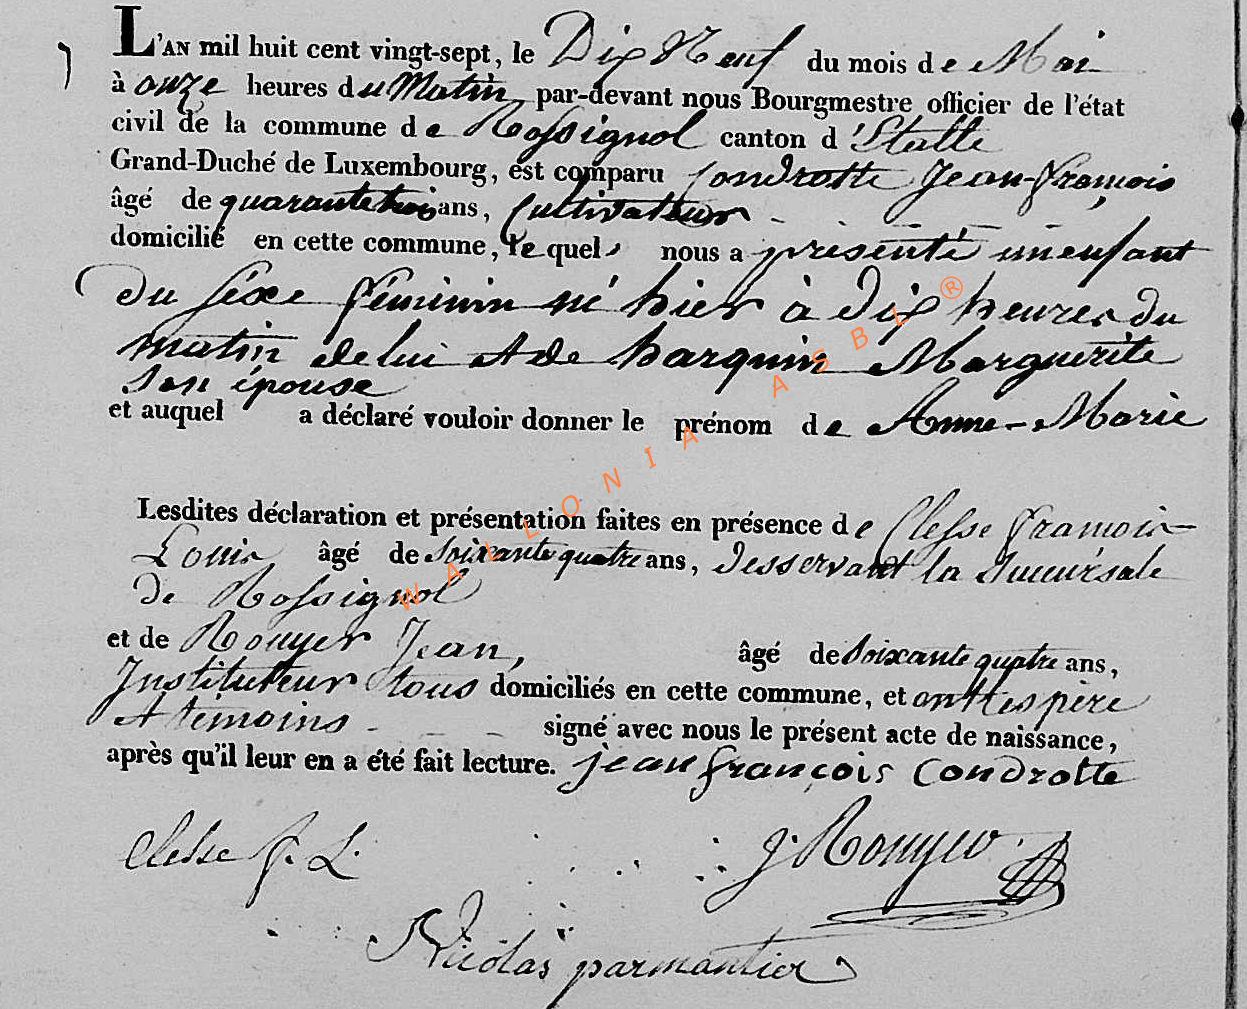 L'AN mil huit cent vingt-sept, le Dix Neuf du mois de Mai
à onze heures du Matin par-devant nous Bourgmestre officier de l'état
civil de la commune de Rossignol canton d'Etalle
Grand-Duché de Luxembourg, est comparu Condrotte Jean-François
âgé de quarante trois ans, Cultivateur
domicilié en cette commune, le quel nous a présenté un enfant
du sexe féminin né hier à dix heures du
matin de lui et de harquin Marguerite
son épouse
et auquel a déclaré vouloir donner le prénom de Anne-Marie
Lesdites déclaration et présentation faites en présence de Clesse François
Louis âgé de soixante quatre ans, desservant la Succursale
de Rossignol
et de Rouyer Jean, âgé de soixante quatre ans,
Instituteur tous domiciliés en cette commune, et ont les père
et témoins signé avec nous le présent acte de naissance,
après qu'il leur en a été fait lecture. jean françois Condrotte
Clesse f. L.
J. Rouyer
Nicolas parmentier
WALLONIA ASBL ®